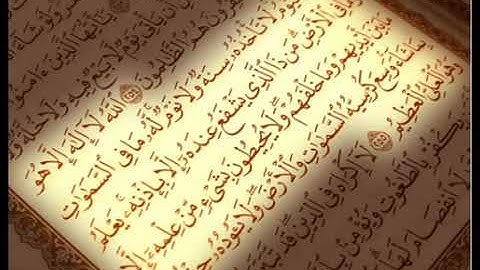 يَأَيُّهَا ٱلَّذِينَ ءَامَنُوٓا۟
أَن يَأْتِىَ يَوْمٌ لَّا بَيْعٌ فِيهِ وَلَا خُلَّةٌ
هُمُ ٱلظَّٰلِمُونَ ٢٥٤ ٱللَّهُ لَآ إِلَٰهَ إِلَّا هُوَ
لَا تَأْخُذُهُۥ سِنَةٌ وَلَا نَوْمٌ لَّهُۥ مَا فِى ٱلسَّمَٰوَٰتِ
فِى ٱلْأَرْضِ مَن ذَا ٱلَّذِى يَشْفَعُ عِندَهُۥٓ إِلَّا بِإِذْنِهِۦ يَعْلَمُ
مَا بَيْنَ أَيْدِيهِمْ وَمَا خَلْفَهُمْ وَلَا يُحِيطُونَ بِشَىْءٍ مِّنْ عِلْمِهِۦٓ إِلَّا
بِمَا شَآءَ وَسِعَ كُرْسِيُّهُ ٱلسَّمَٰوَٰتِ وَٱلْأَرْضَ وَلَا يَـُٔودُهُۥ
وَهُوَ ٱلْعَلِىُّ ٱلْعَظِيمُ ٢٥٥ لَآ إِكْرَاهَ فِى ٱلدِّينِ قَد تَّبَيَّنَ
يَكْفُرْ بِٱلطَّٰغُوتِ وَيُؤْمِنۢ بِٱللَّهِ
لَا ٱنفِصَامَ لَهَا